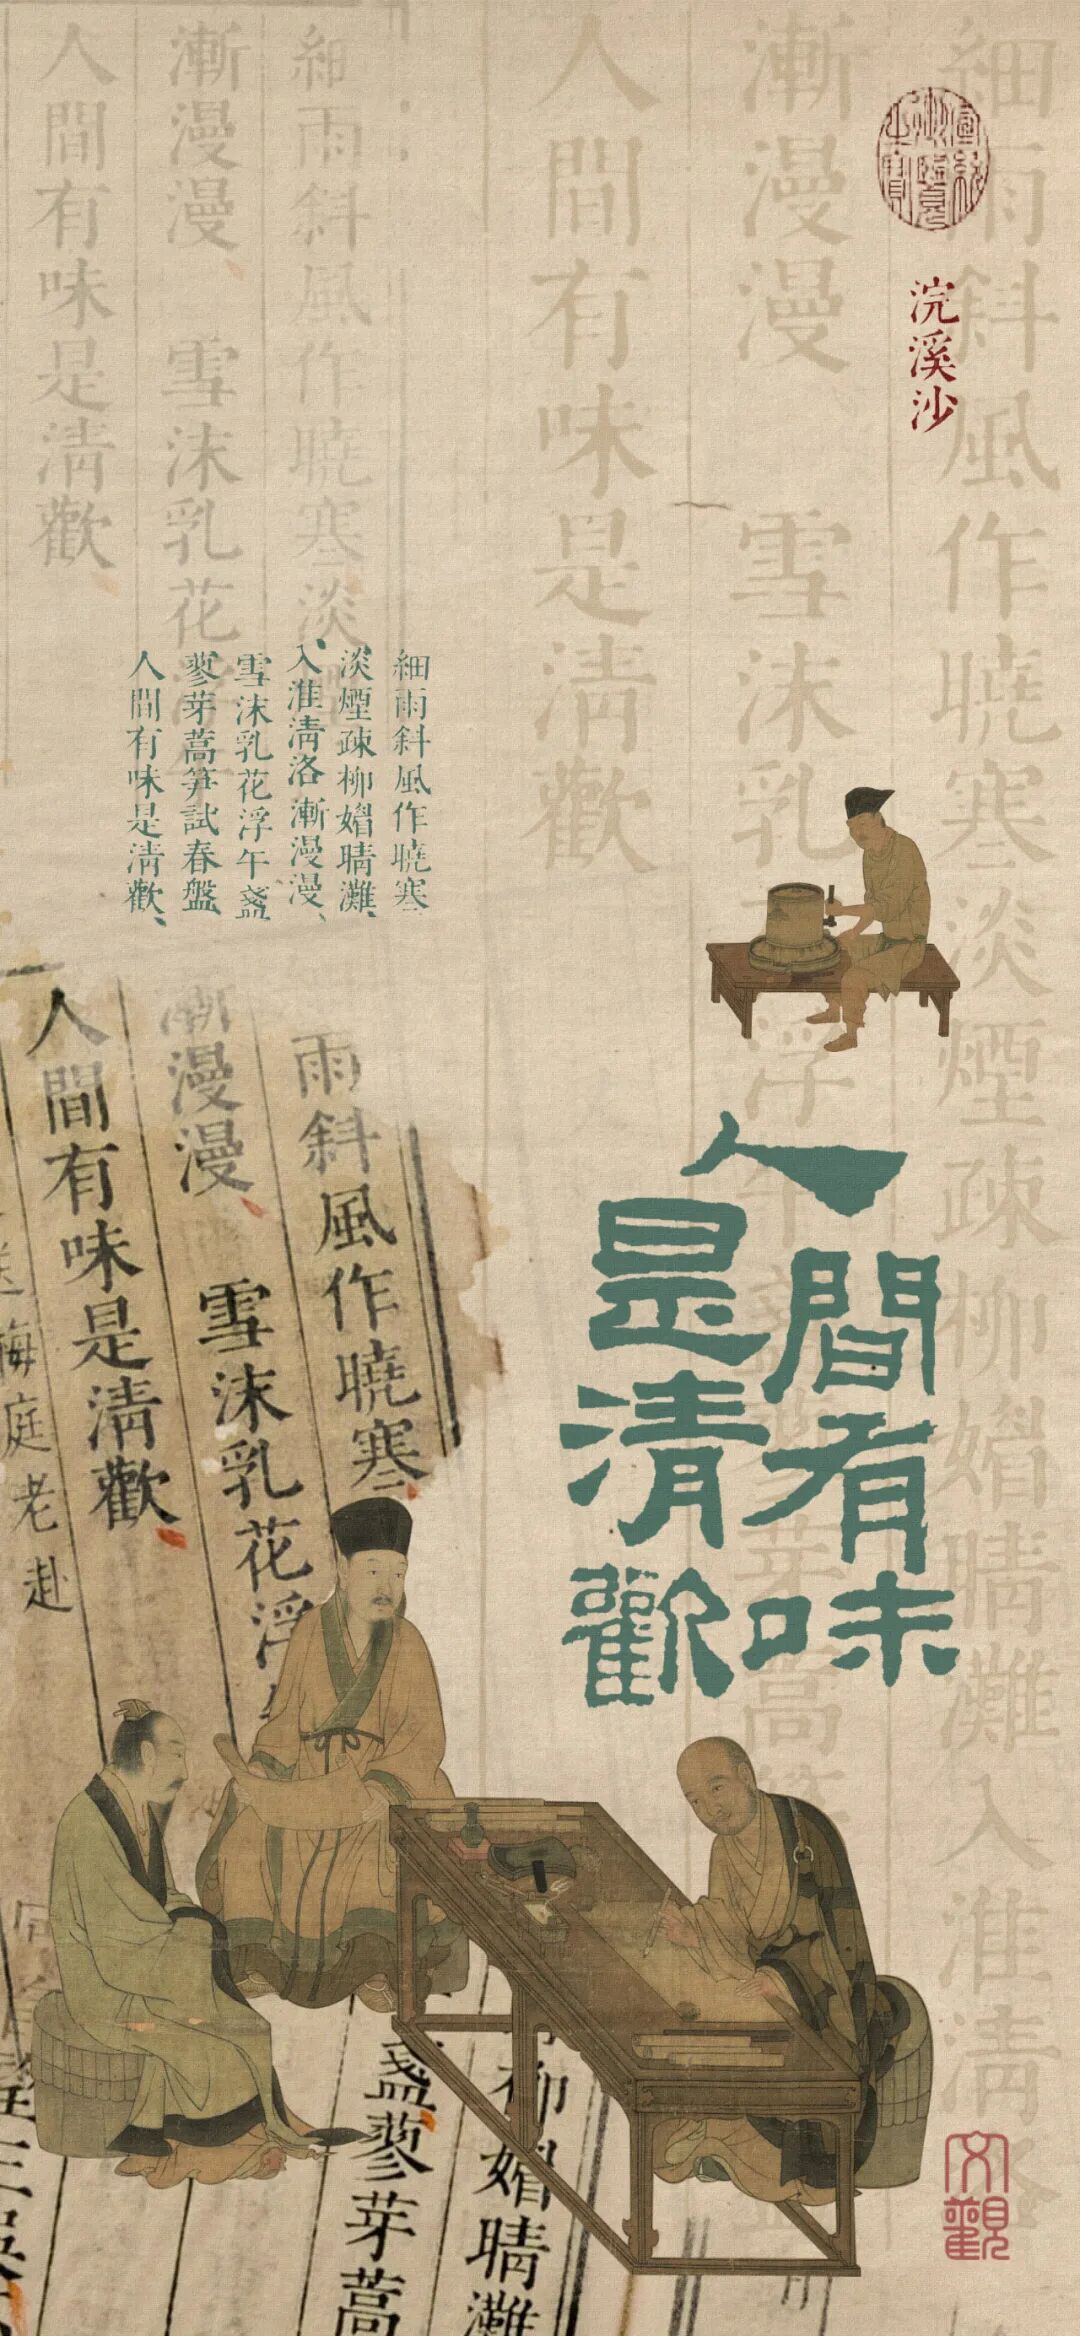 宣統御覽之寶
浣溪沙
細雨斜風作曉寒淡煙疎柳媚晴灘入淮淸
漸漫漫 雪沫乳花浮午盞蓼芽蒿
人間有味是淸歡
細雨斜風作曉寒淡煙
漸漫漫、雪沫乳花浮
人間有味是淸歡、
細雨斜風作曉寒
淡煙疎柳媚晴灘、
入淮淸洛漸漫漫、
雪沫乳花浮午盞
蓼芽蒿笋試春盤
人間有味是淸歡、
人間有味
是清歡
雨斜風作曉寒、
柳媚晴灘
漸漫漫、雪沫乳花浮
盞蓼芽蒿
人間有味是淸歡、
梅庭老赴
文觀